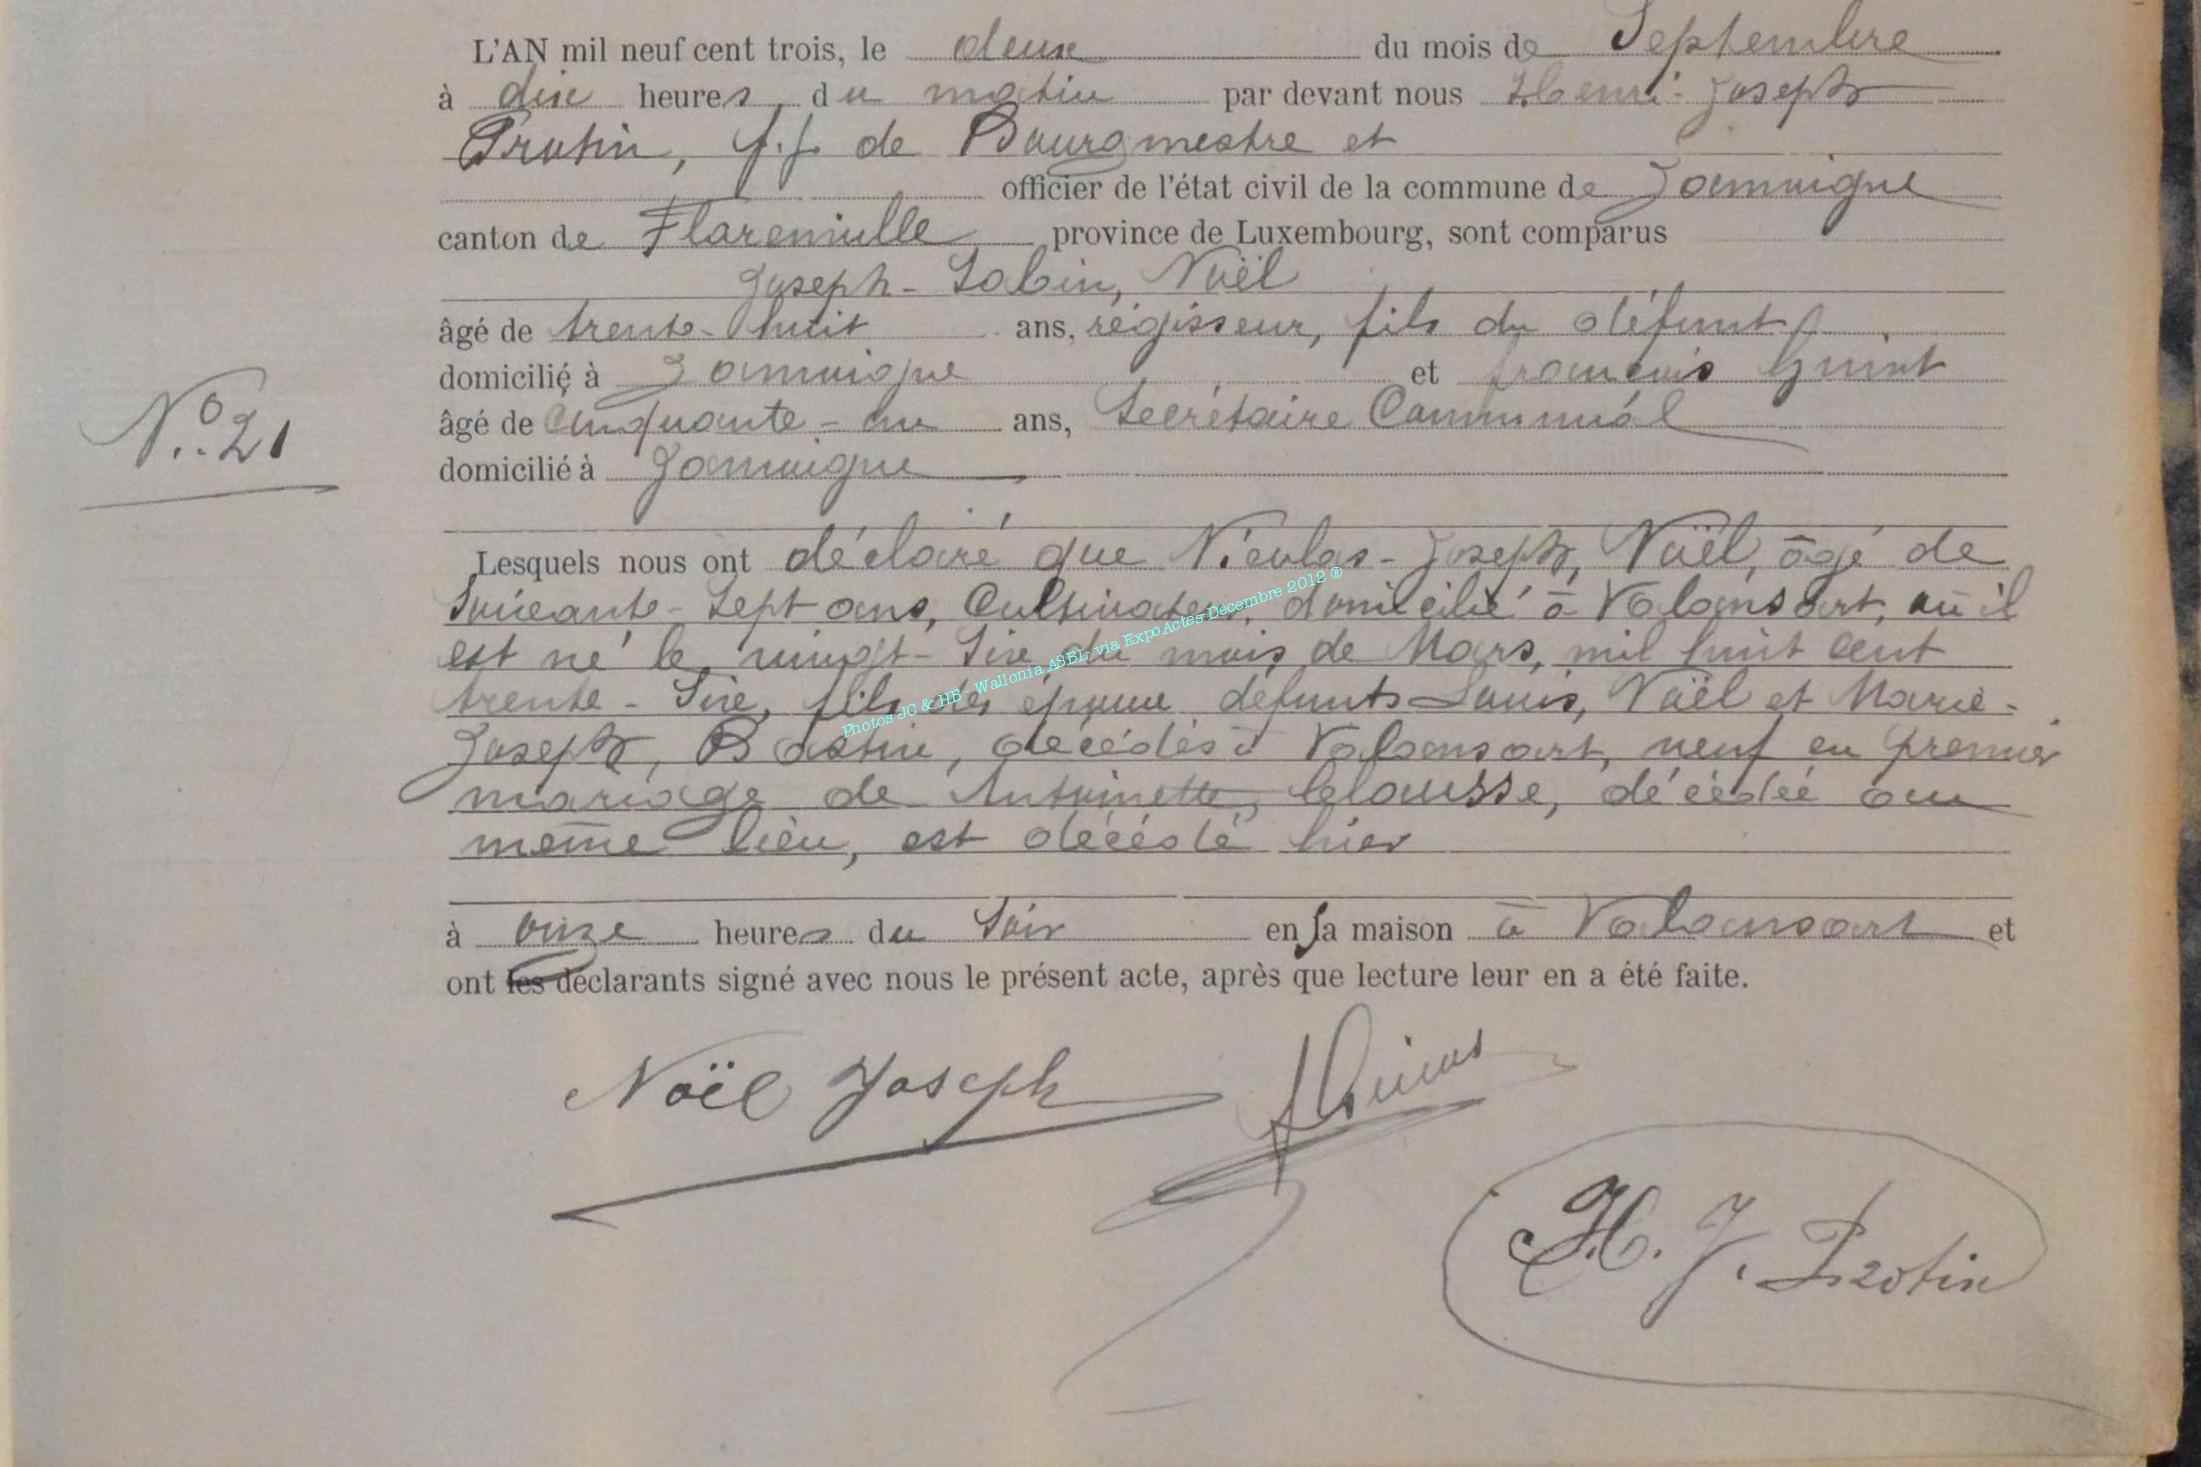 L'AN mil neuf cent trois, le deux du mois de Septembre
à dix heures du matin par devant nous Henri-Joseph
Protin, f.f. de Bourgmestre et
officier de l'état civil de la commune de Jamoigne
canton de Florenville province de Luxembourg, sont comparus
Joseph-Sabin, Noël
âgé de trente-huit ans, régisseur, fils du défunt
domicilié à Jamoigne et françois
âgé de Cinquante-un ans, Secrétaire Communal
domicilié à Jamoigne
N° 21
Lesquels nous ont déclaré que Nicolas-Joseph, Noël, âgé de
Soixante-Sept ans, Cultivateur, domicilié à Valansart, où il
est né le vingt-Six du mois de Mars, mil huit cent
trente-Six, fils des époux défunts Louis, Noël et Marie-
Joseph, Bastin, décédés à Valansart, veuf en premier
mariage de Antoinette, Clausse, décédée au
même lieu, est décédé hier
à onze heures du Soir en sa maison à Valansart et
ont les déclarants signé avec nous le présent acte, après que lecture leur en a été faite.
Noël Joseph
H. J. Protin
Photos JC & HB - Wallonia ASBL via ExpoActes Décembre 2012 ®